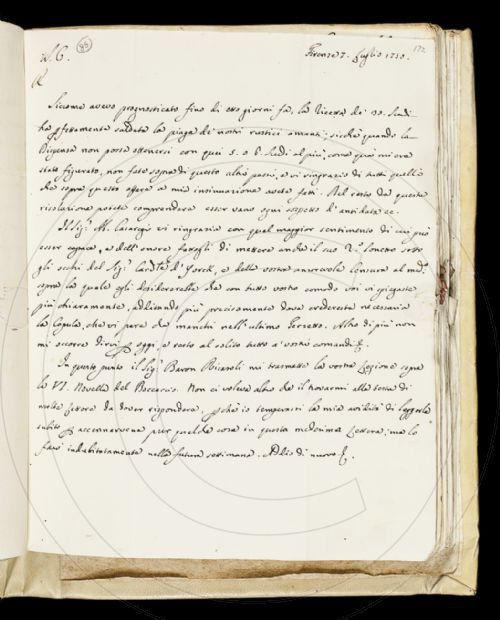 A. C.
85
Firenze 7. Luglio 1750.
172
Siccome avevo prognosticato fino di otto giorni fa, la ricetta de' 30. Scudi
ha affatto saldata la piaga de' nostri rustici amanti; sicché quando la
Dispensa non possa ottenersi con quei 5. o 6. Scudi al più, come già mi ero
stato figurato, non farò sopra di questo altri passi, e vi ringrazio di tutti quelli
che sopra questo affare a mia insinuazione avete fatti. Del resto da questa
risoluzione potete comprendere esser vano ogni sospetto d'antidata &c.
Il Sig.r M. vi ringrazia con quel maggior sentimento di cui può
esser capace, e dell'onore fattogli di mettere anche il suo 2.o Sonetto sotto
gli occhi del Sig.r Card.e d'Yorck, e della vostra autorevole censura al med.o
sopra la quale egli desidererebbe che con tutto vostro comodo voi vi spiegaste
più chiaramente, additando più precisamente dove credereste necessaria
la Copula, che vi pare che manchi nell'ultimo Terzetto. Altro di più non
mi occorre dirvi per oggi, e resto al solito tutto a' vostri comandi &.
In questo punto il Sig.r Baron Ricasoli mi trasmette la vostra Lezione sopra
la VI. Novella del Boccaccio. Non ci voleva altro che il trovarmi alla testa di
molte Lettere da dover rispondere, perché io temperassi la mia avidità di leggerla
subito per accennarvene pur qualche cosa in questa medesima Lettera; ma lo
farò indubitatamente nella futura settimana. Addio di nuovo &.